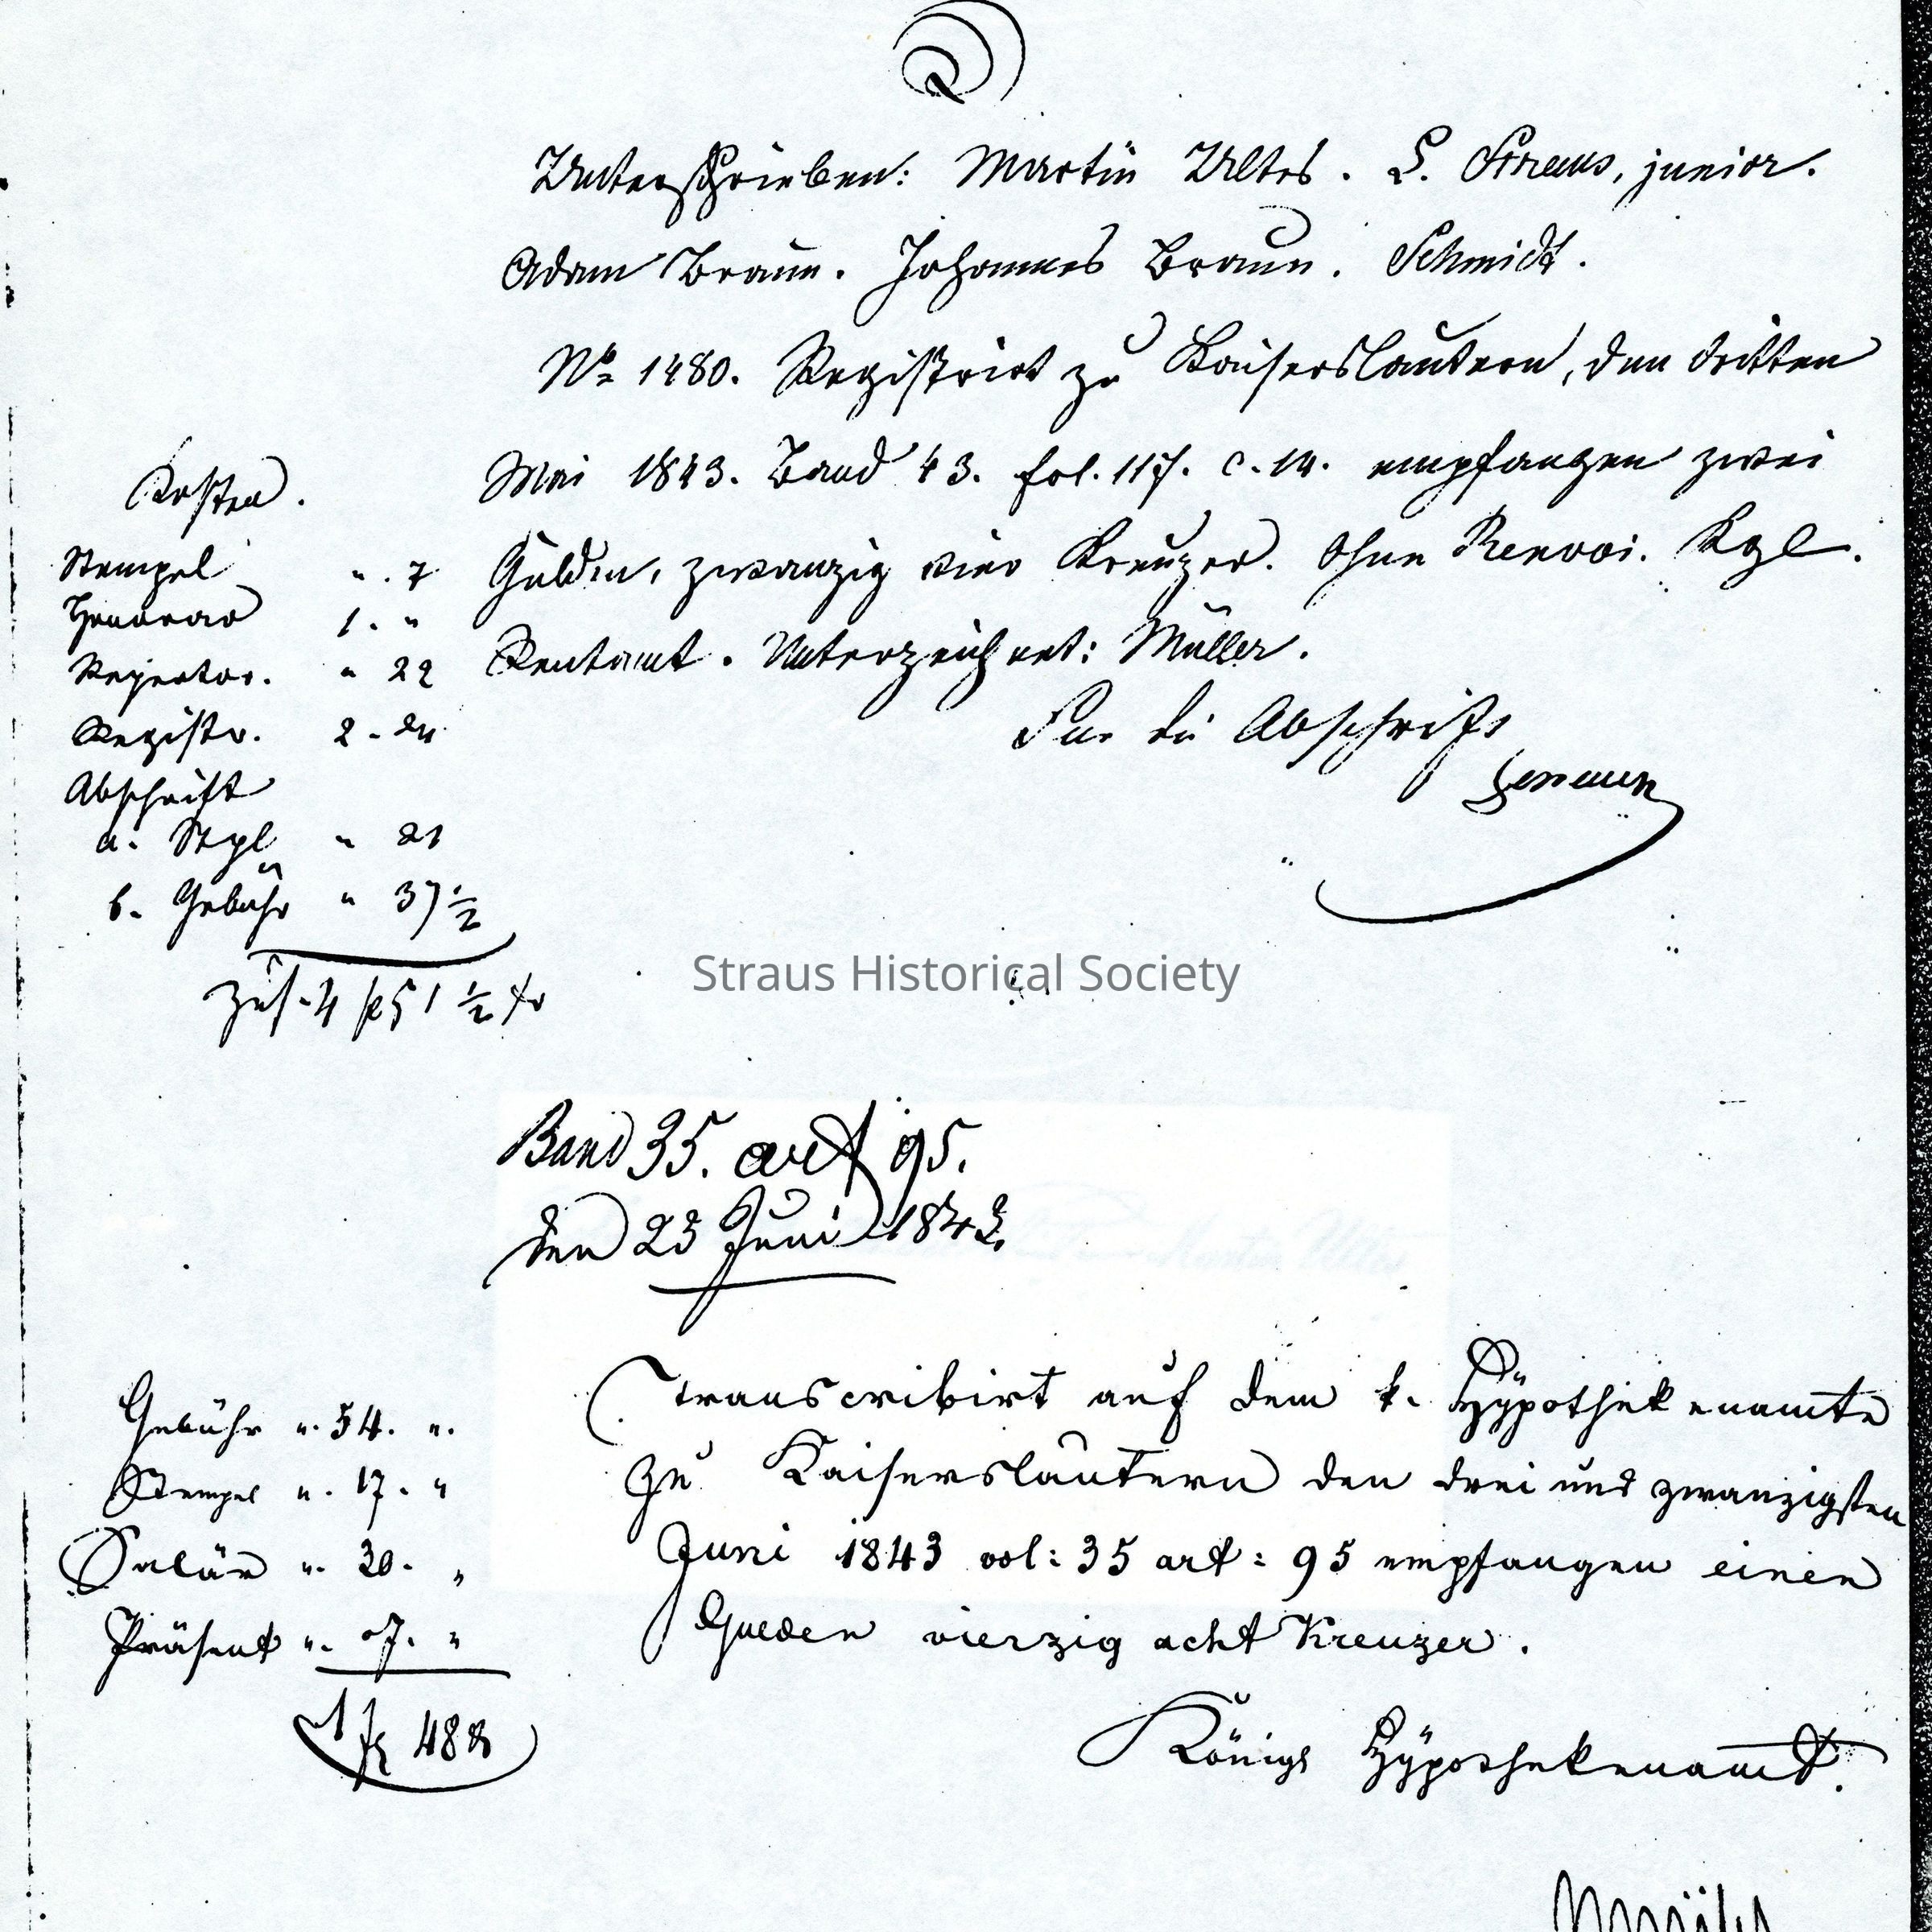 Unterschrieben: Martin Ultes. L. Straus, junior.
Adam Braun. Johannes Braun. Schmidt.
No 1480. Registrirt zu Kaiserslautern, den dritten
Mai 1843. Band 43. fol. 117. c. 14. empfangen zwei
Gulden, zwanzig vier Kreuzer. Ohne Renvoi. Kgl.
Rentamt. Unterzeichnet: Müller.
Für die Abschrift
Kosten.
Stempel " . 7
Honorar 1 . "
Repertor. " 22
Registr. 2 - 24
Abschrift
a. Stpl " 21
b. Gebühr " 37 1/2
Zus. 4 fl 51 1/2 xr
Straus Historical Society
Band 35. art 95.
den 23 Juni 1843.
Transcribirt auf dem k. Hypothekenamte
zu Kaiserslautern den drei und zwanzigsten
Juni 1843 vol: 35 art: 95 empfangen einen
Gulden vierzig acht Kreuzer.
Königs Hypothekenamt.
Gebühr ". 54. ".
Stempel ". 17. "
Salär ". 30. "
Präsent ". 07. "
1 fl 48 x